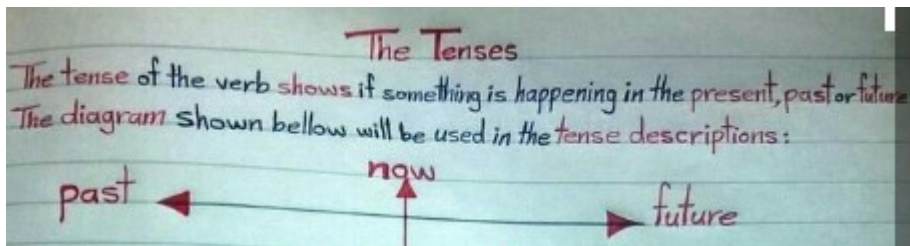 The Tenses
The tense of the verb shows if something is happening in the present, past or future
The diagram shown bellow will be used in the tense descriptions:
now
past future